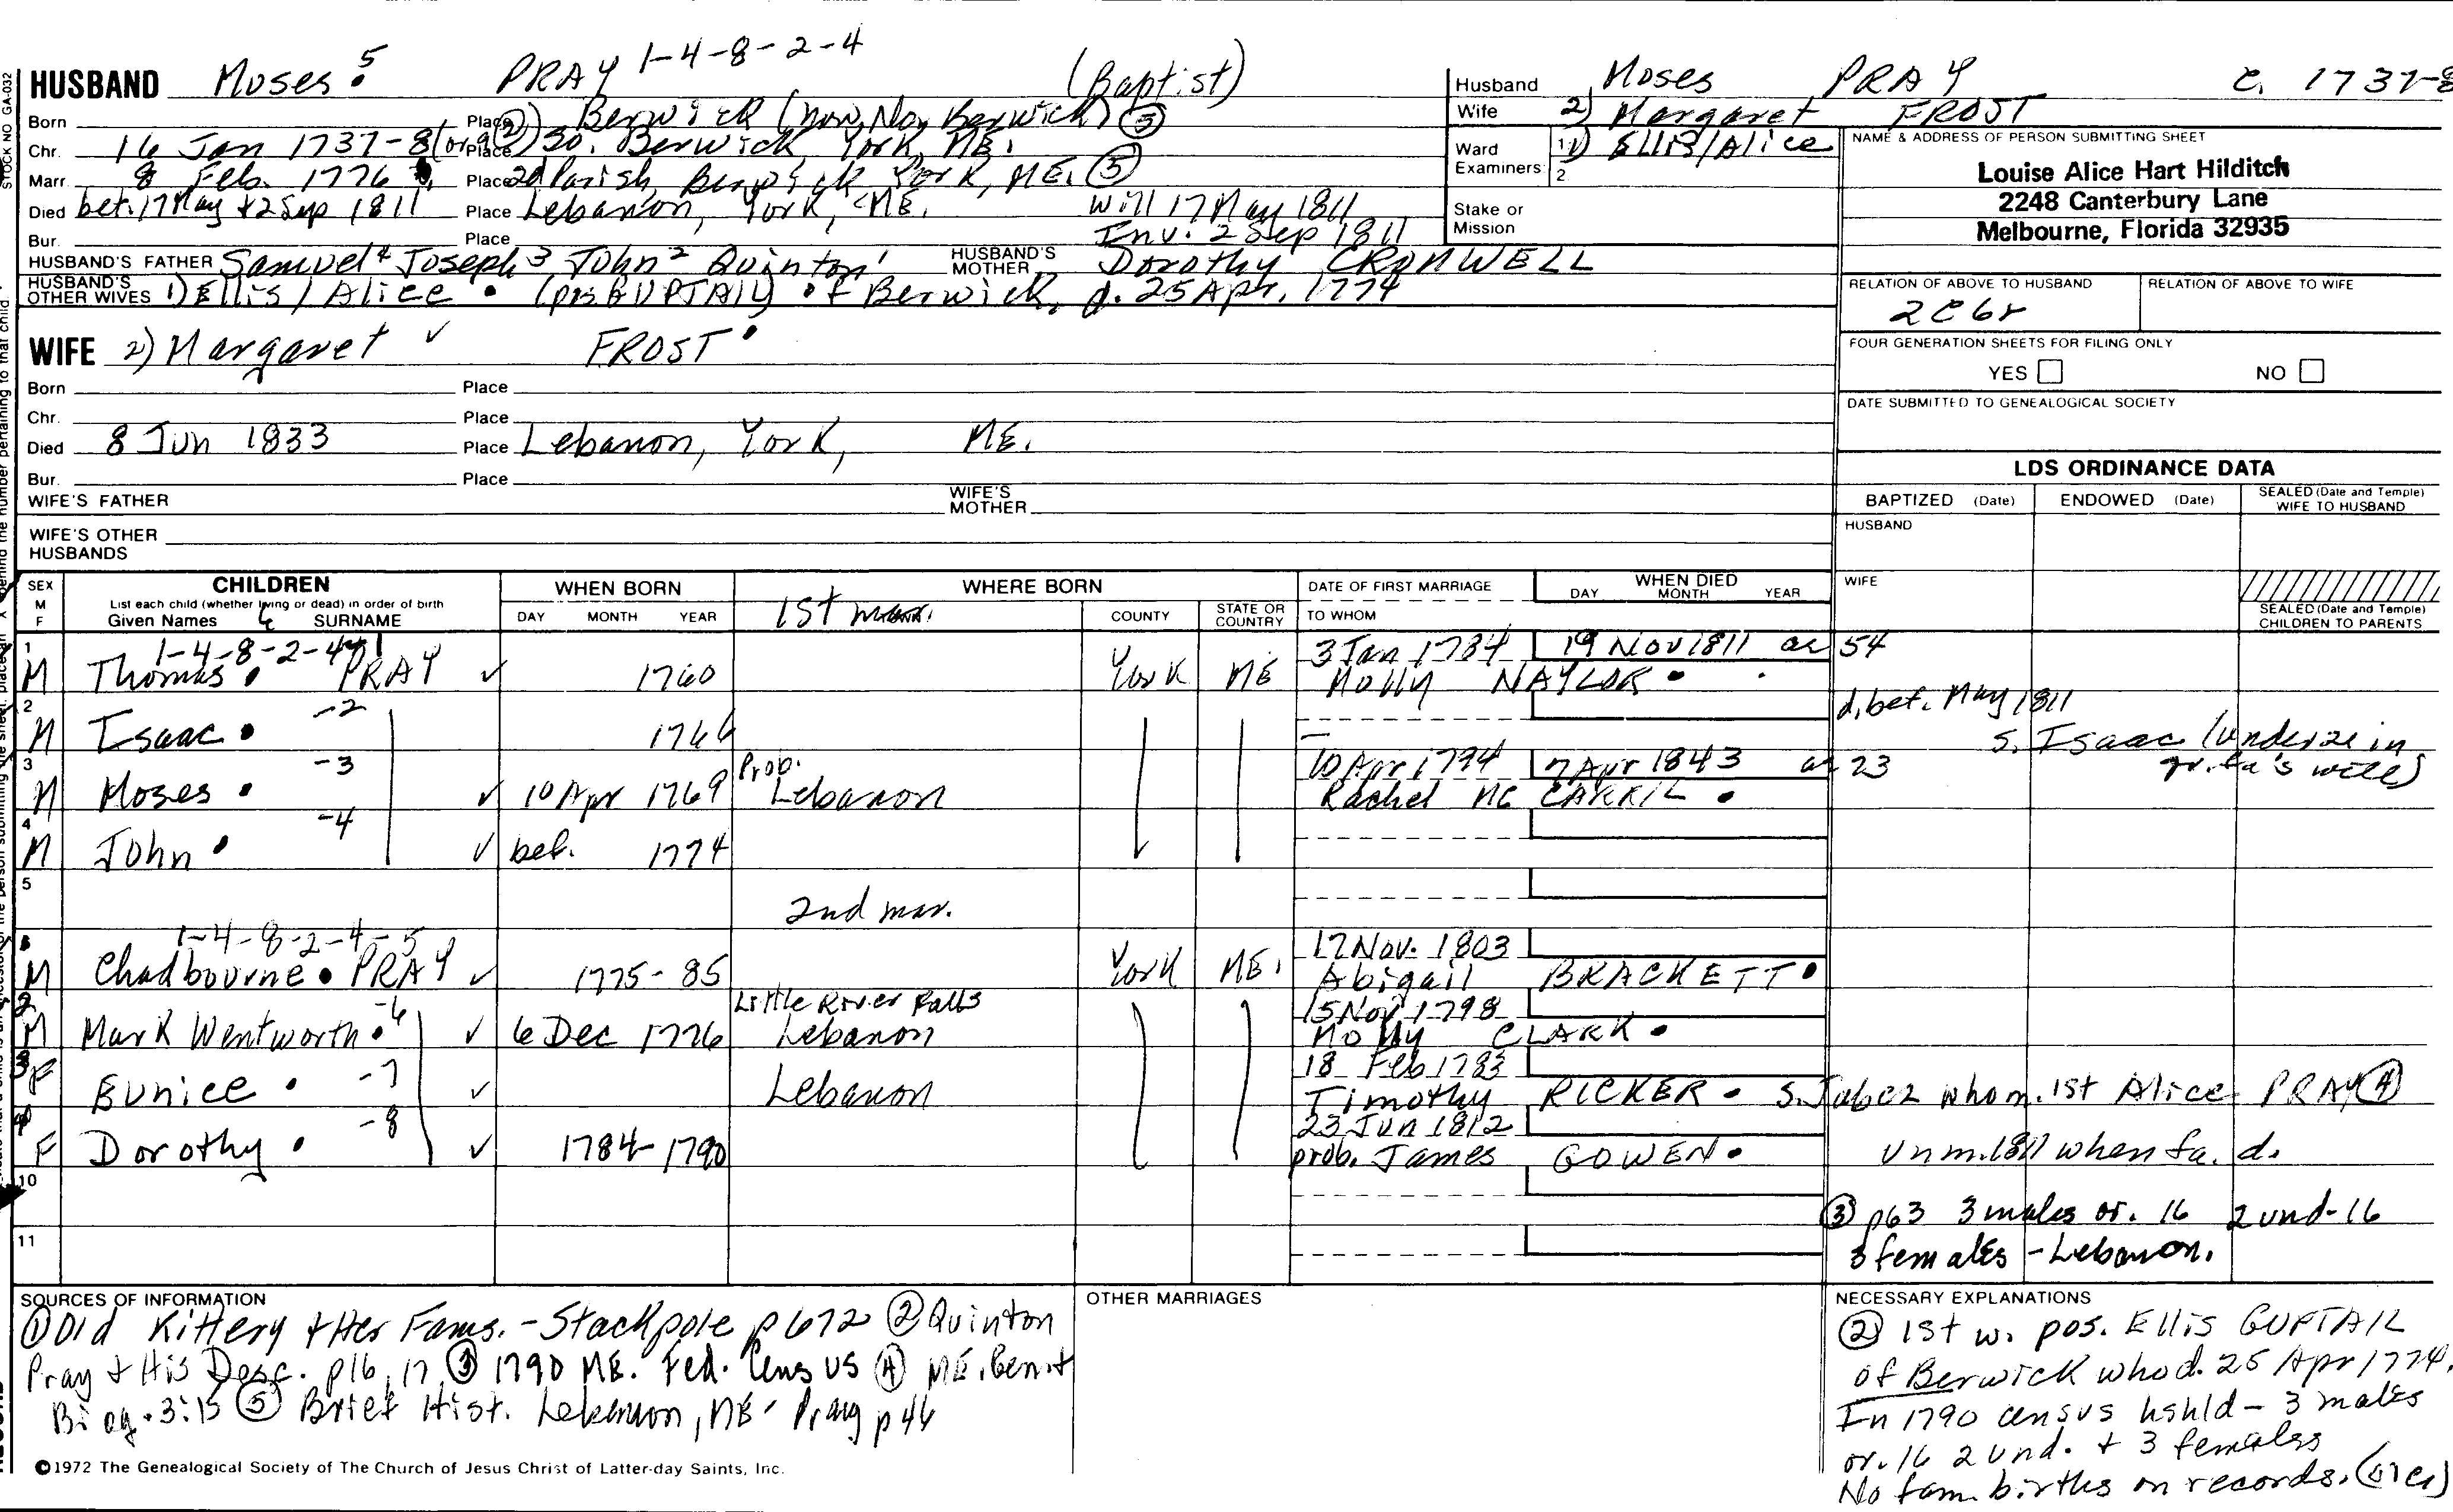 1-4-8-2-4
HUSBAND Moses 5 PRAY (Baptist)
Husband Moses PRAY c. 1737-8
Born Place Berwick (now No. Berwick) ⑤
Wife 2) Margaret FROST
Chr. 16 Jan 1737-8 (or 9 ②) Place So. Berwick York, ME.
Ward Examiners 1. 1) Ellis/Alice
2.
Marr. 8 Feb. 1776 Place 2d Parish, Berwick York, ME. ⑤
Died bet. 17 May + 2 Sep 1811 Place Lebanon, York, ME. Will 17 May 1811
Stake or Mission
Bur. Place Inv. 2 Sep 1811
HUSBAND'S FATHER Samuel 4 Joseph 3 John 2 Quinton 1 HUSBAND'S MOTHER Dorothy CROMWELL
HUSBAND'S OTHER WIVES 1) Ellis / Alice (pos. GUPTAIL) of Berwick, d. 25 Apr. 1774
NAME & ADDRESS OF PERSON SUBMITTING SHEET
Louise Alice Hart Hilditch
2248 Canterbury Lane
Melbourne, Florida 32935
RELATION OF ABOVE TO HUSBAND RELATION OF ABOVE TO WIFE
2C6r
WIFE 2) Margaret ✓ FROST
FOUR GENERATION SHEETS FOR FILING ONLY
YES NO
Born Place
Chr. Place
DATE SUBMITTED TO GENEALOGICAL SOCIETY
Died 8 Jun 1833 Place Lebanon, York, ME.
Bur. Place
WIFE'S FATHER WIFE'S MOTHER
WIFE'S OTHER HUSBANDS
LDS ORDINANCE DATA
BAPTIZED (Date) ENDOWED (Date) SEALED (Date and Temple) WIFE TO HUSBAND
HUSBAND
WIFE
SEALED (Date and Temple) CHILDREN TO PARENTS
SEX M F CHILDREN WHEN BORN WHERE BORN DATE OF FIRST MARRIAGE WHEN DIED
List each child (whether living or dead) in order of birth
Given Names SURNAME DAY MONTH YEAR 1st marr. COUNTY STATE OR COUNTRY TO WHOM DAY MONTH YEAR
1 1-4-8-2-4-1 3 Jan 1784 19 Nov 1811 ae 54
M Thomas PRAY ✓ 1760 York ME Molly NAYLOR
2 -2 d. bef. May 1811
M Isaac 1766 s. Isaac (under 21 in gr. fa's will)
3 -3 Prob. 10 Apr 1794 7 Apr 1843 ae 73
M Moses ✓ 10 Apr 1769 Lebanon Rachel
4 -4
M John ✓ bef. 1774
5
2nd mar.
1-4-8-2-4-5 17 Nov. 1803
M Chadbourne PRAY ✓ 1775-85 York ME. Abigail BRACKETT
2 -6 Little River Falls 15 Nov 1798
M Mark Wentworth ✓ 6 Dec 1776 Lebanon Molly CLARK
3 -7 18 Feb 1783
F Eunice ✓ Lebanon Timothy RICKER s. Jabez who m. 1st Alice PRAY ④
4 -8 23 Jun 1812
F Dorothy ✓ 1784-1790 prob. James GOWEN unm. 1811 when fa. d.
10
③ p63 3 males ov. 16 2 und-16
11
3 females - Lebanon.
SOURCES OF INFORMATION
① Old Kittery + Her Fams. - Stackpole p 672 ② Quinton
Pray + His Desc. p16, 17 ③ 1790 ME. Fed. Census ④ ME.
Biog. 3:15 ⑤ Brief Hist. Lebanon, ME - Pray p 46
OTHER MARRIAGES
NECESSARY EXPLANATIONS
② 1st w. pos. Ellis GUPTAIL
of Berwick who d. 25 Apr 1774.
In 1790 census hshld - 3 males
ov. 16 2 und. + 3 females
No fam. births on records. (over)
©1972 The Genealogical Society of The Church of Jesus Christ of Latter-day Saints, Inc.
STOCK NO GA-032